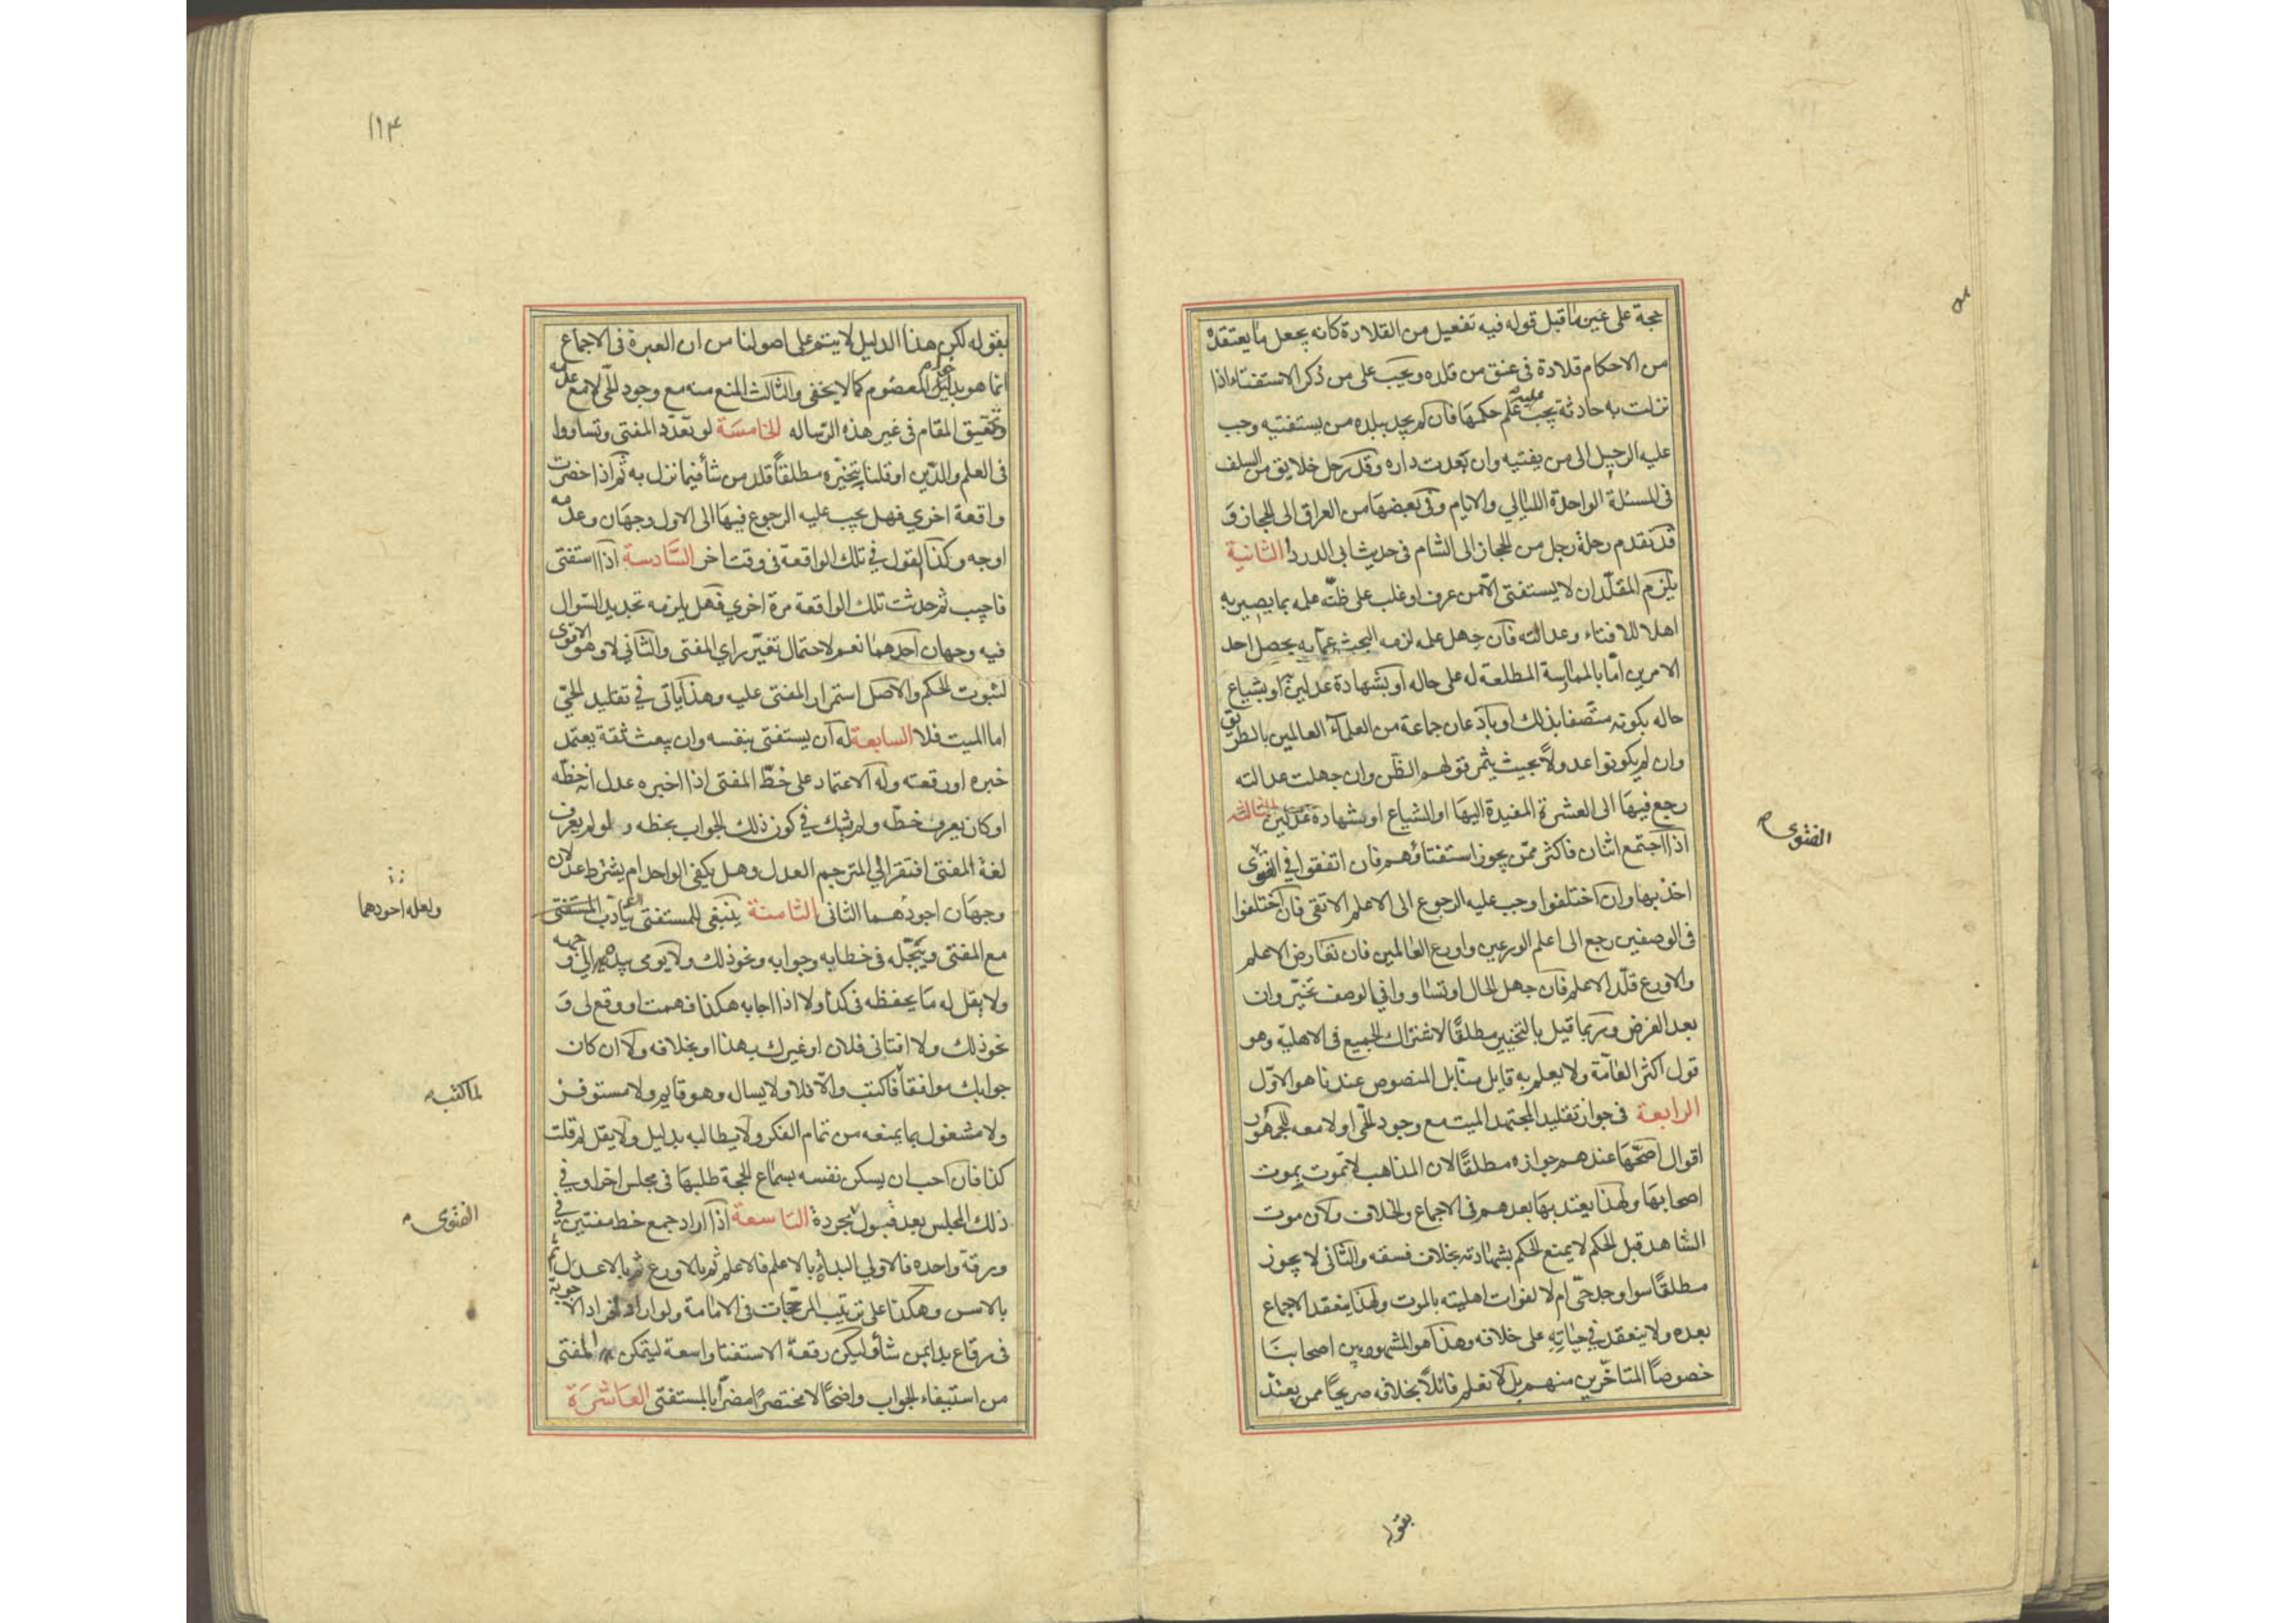 حجة على عين ما قبل قوله فيه تفعيل من القلادة كانه يجعل ما يعتقده
من الاحكام قلادة في عنق من قلده ويجب على من ذكر الاستفتاء اذا
نزلت به حادثة يجب عليه علم حكمها فان لم يجد ببلده من يستفتيه وجب
عليه الرحيل الى من يفتيه وان بعدت داره وقد رحل خلايق من السلف
في المسئلة الواحدة الليالي والايام وفي بعضها من العراق الى الحجاز و
قد تقدم رحلة رجل من الحجاز الى الشام في حديث ابي الدرداء الثانية
يلزم المقلد ان لا يستفتى الا من عرف او غلب على ظنه علمه بما يصير به
اهلا للافتاء وعدالته فان جهل علمه لزمه البحث عما به يحصل احد
الامرين اما بالممارسة المطلعة له على حاله او بشهادة عدلين او بشياع
حاله بكونه متصفا بذلك او باذعان جماعة من العلماء العالمين بالطريق
وان لم يكونوا عدولا بحيث يثمر قولهم الظن وان جهلت عدالته
رجع فيها الى العشرة المفيدة اليها او الشياع او بشهادة عدلين الثالثة
اذا اجتمع اثنان فاكثر ممن يجوز استفتاؤهم فان اتفقوا في الفتوى
اخذ بها وان اختلفوا وجب عليه الرجوع الى الاعلم الاتقى فان اختلفوا
في الوصفين رجع الى اعلم الورعين واورع العالمين فان تعارض الاعلم
والاورع قلد الاعلم فان جهل الحال او تساووا في الوصف تخير وان
بعد الفرض وربما قيل بالتخيير مطلقا لاشتراك الجميع في الاهلية وهو
قول اكثر العامة ولا يعلم به قايل منا بل المنصوص عندنا هو الاول
الرابعة في جواز تقليد المجتهد الميت مع وجود الحي او لا معه للجمهور
اقوال اصحها عندهم جوازه مطلقا لان المذاهب لا تموت بموت
اصحابها ولهذا يعتد بها بعدهم في الاجماع والخلاف ولان موت
الشاهد قبل الحكم لا يمنع الحكم بشهادته بخلاف فسقه والثاني لا يجوز
مطلقا سوا وجد حي ام لا لفوات اهليته بالموت ولهذا ينعقد الاجماع
بعده ولا ينعقد في حياته على خلافه وهذا هو المشهور بين اصحابنا
خصوصا المتاخرين منهم بل لا نعلم قائلا بخلافه صريحا ممن يعتد
الفتوى
بقوله
١١٣
بقوله لكن هذا الدليل لا يتم على اصولنا من ان العبرة في الاجماع
انما هو بدخول المعصوم كما لا يخفى والثالث المنع منه مع وجود الحي لا مع عدمه
وتحقيق المقام في غير هذه الرساله الخامسة لو تعدد المفتي وتساووا
في العلم والدين او قلنا بتخيره مطلقا قلد من شاء فيما نزل به ثم اذا حضرت
واقعة اخرى فهل يجب عليه الرجوع فيها الى الاول وجهان وعدمه
اوجه وكذا القول في تلك الواقعة في وقت اخر السادسة اذا استفتى
فاجيب ثم حدثت تلك الواقعة مرة اخرى فهل يلزمه تجديد السؤال
فيه وجهان احدهما نعم لاحتمال تغير راي المفتي والثاني لا وهو الاقوى
لثبوت الحكم والاصل استمرار المفتي عليه وهذا ياتي في تقليد الحي
اما الميت فلا السابعة له ان يستفتى بنفسه وان يبعث ثقة يعتمد
خبره او رقعته وله الاعتماد على خط المفتي اذا اخبره عدل انه خطه
او كان يعرف خطه ولم يشك في كون ذلك الجواب بخطه ولو لم يعرف
لغة المفتي افتقر الى المترجم العدل وهل يكفي الواحد ام يشترط عدلان
وجهان اجودهما الثاني الثامنة ينبغي للمستفتي ان يتادب
مع المفتي ويبجله في خطابه وجوابه ونحو ذلك ولا يومى بيده في وجهه
ولا يقل له ما يحفظه في كذا ولا اذا اجابه هكذا فهمت او وقع لي و
نحو ذلك ولا افتاني فلان او غيرك بهذا او بخلافه ولا ان كان
جوابك موافقا فاكتب والا فلا ولا يسال وهو قايم ولا مستوفز
ولا مشغول بما يمنعه من تمام الفكر ولا يطالبه بدليل ولا يقل لم قلت
كذا فان احب ان يسكن نفسه بسماع الحجة طلبها في مجلس اخر او في
ذلك المجلس بعد قبول مجردة التاسعة اذا اراد جمع خط مفتين في
ورقة واحده فالاولى البداة بالاعلم فالاعلم ثم بالاورع ثم بالاعدل ثم
بالاسن وهكذا على ترتيب المرجحات في الامامة ولو اراد افراد الاجوبة
في رقاع بدا بمن شاء وليكن رقعة الاستفتا واسعة ليتمكن المفتي
من استيفاء الجواب واضحا لا مختصرا مضرا بالمستفتي العاشرة
ولعله اجودهما
لما كتبه
الفتوى